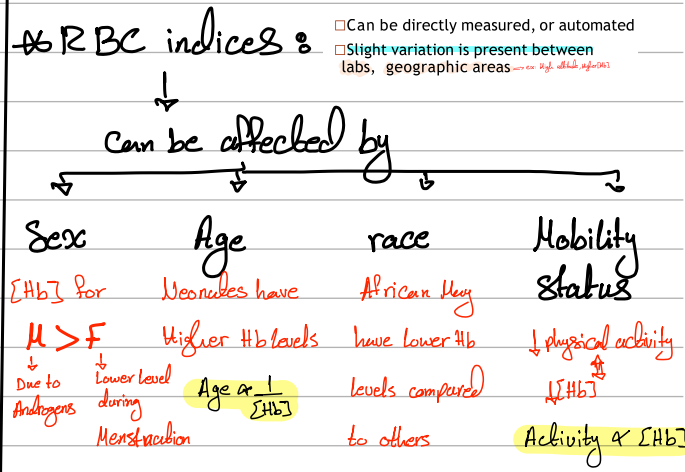 * RBC indices:
□Can be directly measured, or automated
□Slight variation is present between
labs, geographic areas → ex: High altitude, Higher [Hb]
Can be affected by
Sex
[Hb] for
M > F
Due to
Androgens
Lower level
during
Menstruation
Age
Neonates have
Higher Hb levels
Age α 1/[Hb]
race
African May
have lower Hb
levels compared
to others
Mobility
status
↓ physical activity
↓[Hb]
Activity α [Hb]